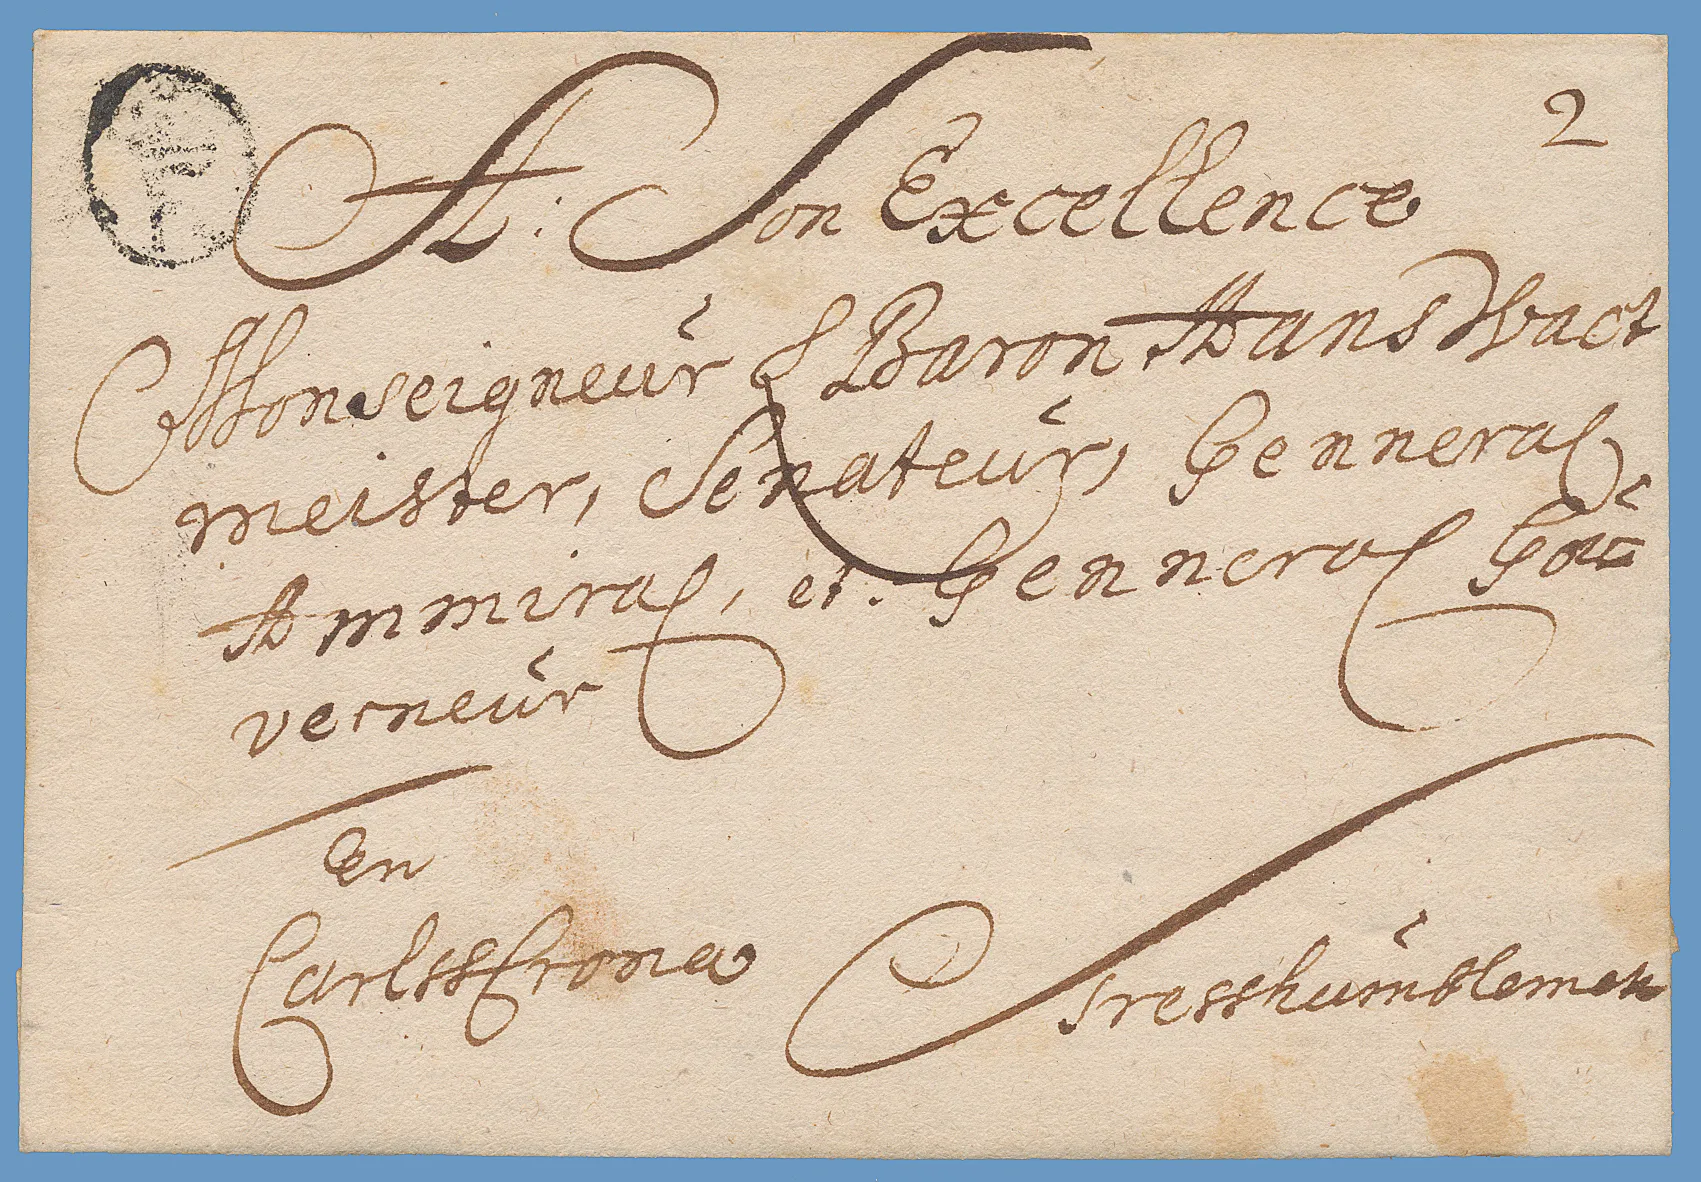 2
A: Son Excellence
Monseigneur l Baron Hans Wact
meister, Senateur, Genneral
Ammiral, et. Genneral Gou
verneur
En
Carlsscrona
Tresshumblement